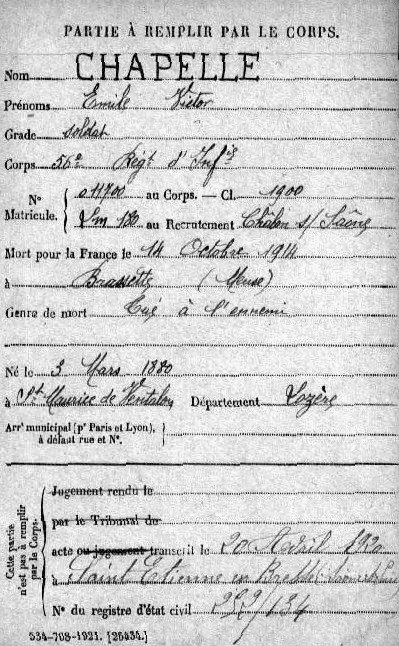 PARTIE À REMPLIR PAR LE CORPS.
Nom CHAPELLE
Prénoms Emile Victor
Grade soldat
Corps 56e Régt d'Infie
N° Matricule. { 011700 au Corps. — Cl. 1900
{ Lm 180 au Recrutement Châlon s/ Saône
Mort pour la France le 14 Octobre 1914
à Brassette (Meuse)
Genre de mort Tué à l'ennemi
Né le 3 Mars 1880
à St Maurice de Ventalon Département Lozère
Arrt municipal (pr Paris et Lyon), à défaut rue et N°.
Cette partie n'est pas à remplir par le Corps.
Jugement rendu le
par le Tribunal de
acte ou jugement transcrit le 20 Avril 1920
à Saint Etienne en Bresse
N° du registre d'état civil
534-708-1921. [25434.]